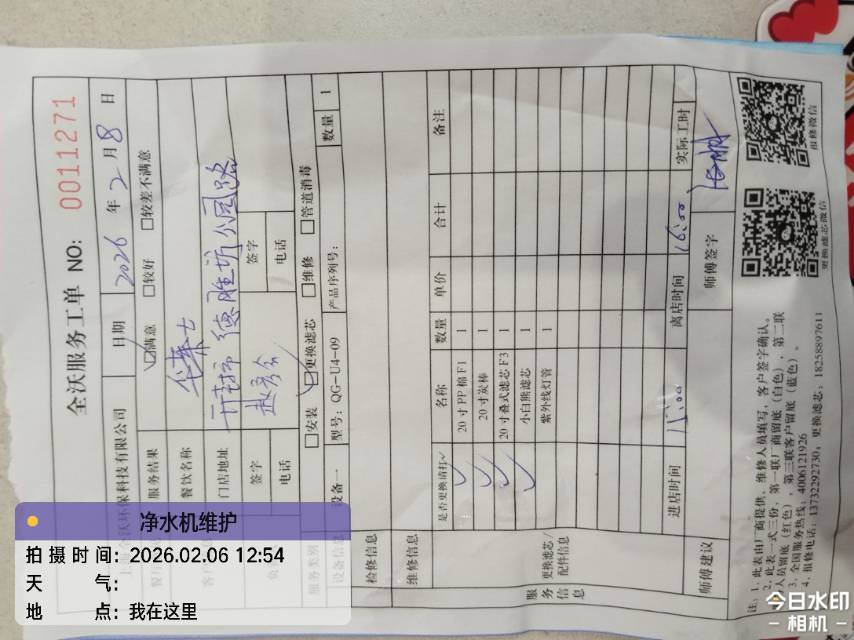 全沃服务工单 NO: 0011271
环保科技有限公司 日期 2026 年 2 月 8 日
服务结果 ☑满意 □较好 □较差不满意
餐饮名称 华莱士
门店地址 开封市 德胜坊公园路
签字 签字
电话 电话
服务类别 □安装 ☑更换滤芯 □维修 □管道消毒
设备信息 设备一 型号: QG-U4-09 产品序列号: 数量 1
检修信息
维修信息
服务信息 更换滤芯/配件信息
是否更换请打✓ 名称 数量 单价 合计 备注
✓ 20 寸 PP 棉 F1 1
✓ 20 寸炭棒 1
✓ 20 寸叠式滤芯 F3 1
小白熊滤芯 1
紫外线灯管 1
进店时间 15:00 离店时间 16:00 实际工时
师傅建议 师傅签字
注: 1、此表由厂商提供、维修人员填写, 客户签字确认。
2、此表一式三份, 第一联厂商留底 (白色), 第二联
人员留底 (红色), 第三联客户留底 (蓝色)。
3、全国服务热线: 4006121926
4、报修电话: 13732292730; 更换滤芯: 18258897611
更换滤芯微信
报修微信
净水机维护
拍摄时间: 2026.02.06 12:54
天气:
地点: 我在这里
今日水印
相机